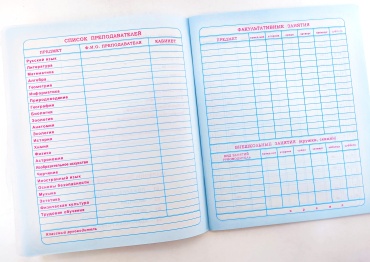 СПИСОК ПРЕПОДАВАТЕЛЕЙ
ПРЕДМЕТ Ф.И.О. ПРЕПОДАВАТЕЛЯ КАБИНЕТ
Русский язык
Литература
Математика
Алгебра
Геометрия
Информатика
Природоведение
География
Биология
Зоология
Анатомия
Экология
История
Химия
Физика
Астрономия
Изобразительное искусство
Черчение
Иностранный язык
Основы безопасности
Музыка
Эстетика
Физическая культура
Трудовое обучение
Классный руководитель
ФАКУЛЬТАТИВНЫЕ ЗАНЯТИЯ
ПРЕДМЕТ
ВНЕШКОЛЬНЫЕ ЗАНЯТИЯ (кружки, секции)